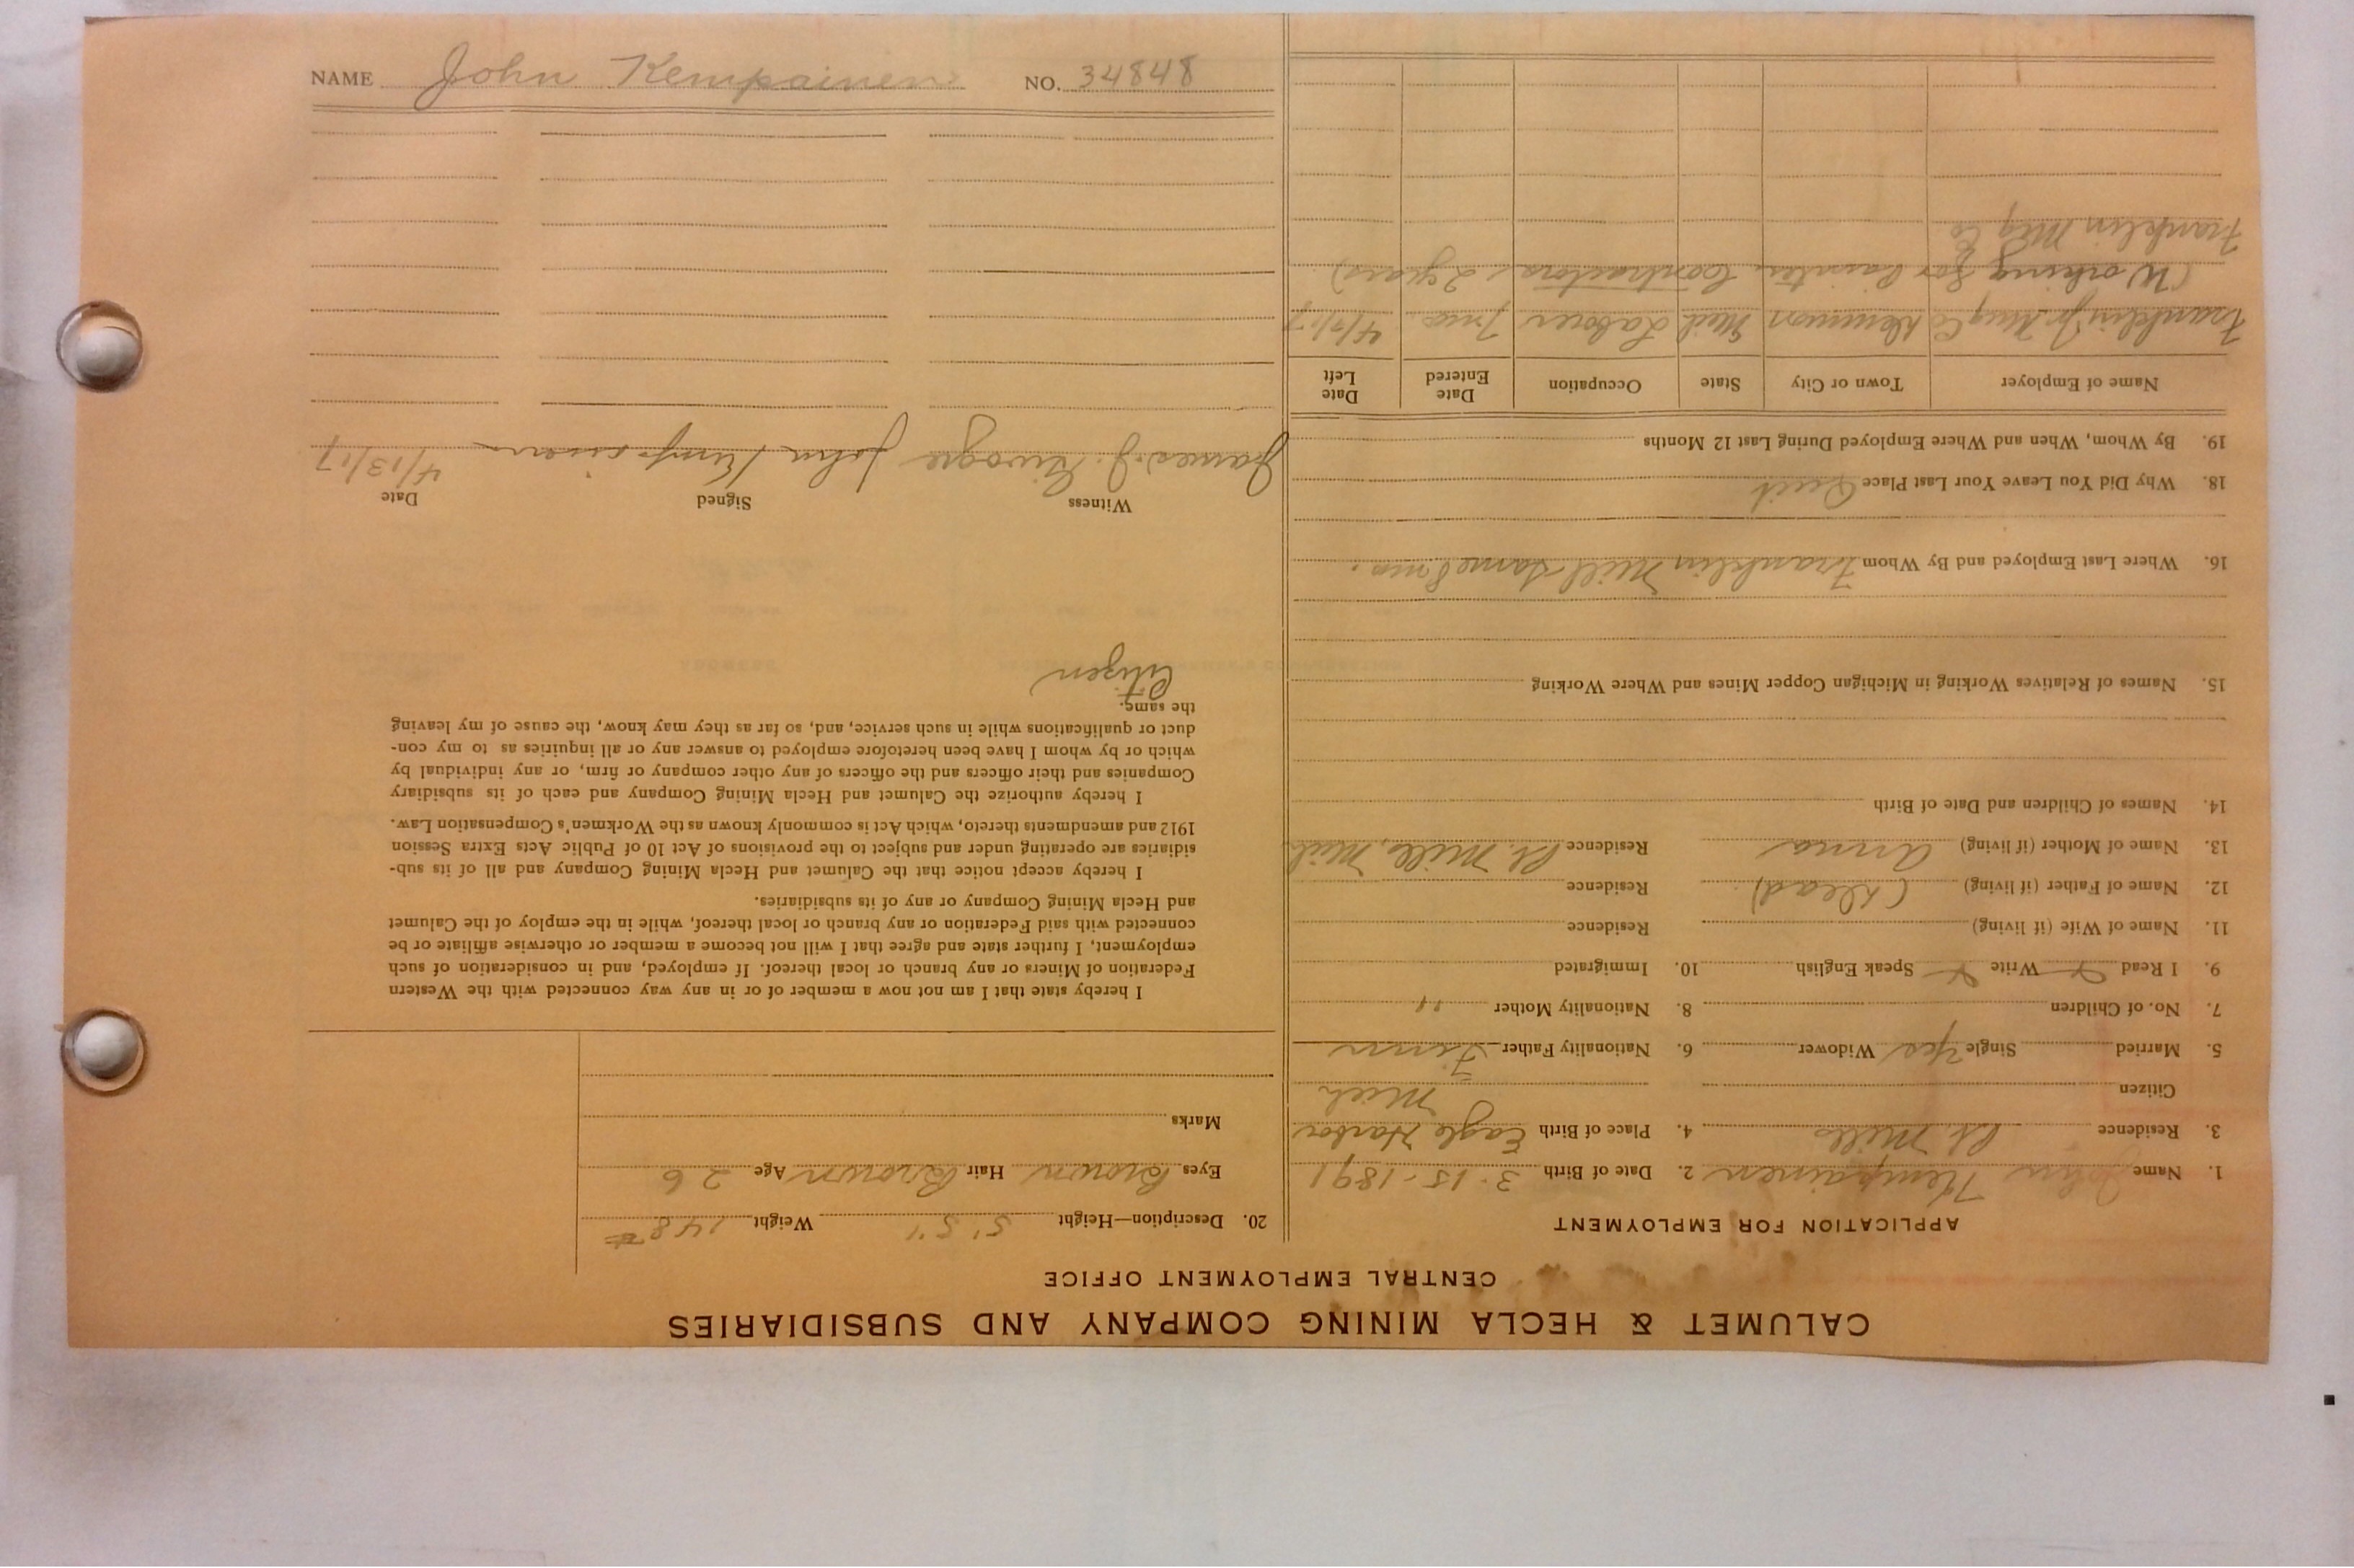 CALUMET & HECLA MINING COMPANY AND SUBSIDIARIES
CENTRAL EMPLOYMENT OFFICE
APPLICATION FOR EMPLOYMENT
1. Name John Kempainen 2. Date of Birth 3-15-1891
3. Residence Pt. Mills 4. Place of Birth Eagle Harbor
Citizen Mich
5. Married Single Yes Widower 6. Nationality Father Finn
7. No. of Children 8. Nationality Mother "
9. I Read Write Speak English 10. Immigrated
11. Name of Wife (if living) Residence
12. Name of Father (if living) (Dead) Residence
13. Name of Mother (if living) Anna Residence Pt. Mills, Mich
14. Names of Children and Date of Birth
15. Names of Relatives Working in Michigan Copper Mines and Where Working
16. Where Last Employed and By Whom Franklin Mill same 8 mo.
18. Why Did You Leave Your Last Place Quit
19. By Whom, When and Where Employed During Last 12 Months
Name of Employer Town or City State Occupation Date Entered Date Left
Franklin Jr. Mng Co Mich Laborer 7 mo
(Working for Contractors 2 years)
Franklin Mng Co
20. Description—Height 5' 5" Weight 148#
Eyes Brown Hair Brown Age 26
Marks
I hereby state that I am not now a member of or in any way connected with the Western
Federation of Miners or any branch or local thereof. If employed, and in consideration of such
employment, I further state and agree that I will not become a member or otherwise affiliate or be
connected with said Federation or any branch or local thereof, while in the employ of the Calumet
and Hecla Mining Company or any of its subsidiaries.
I hereby accept notice that the Calumet and Hecla Mining Company and all of its sub-
sidiaries are operating under and subject to the provisions of Act 10 of Public Acts Extra Session
1912 and amendments thereto, which Act is commonly known as the Workmen's Compensation Law.
I hereby authorize the Calumet and Hecla Mining Company and each of its subsidiary
Companies and their officers and the officers of any other company or firm, or any individual by
which or by whom I have been heretofore employed to answer any or all inquiries as to my con-
duct or qualifications while in such service, and, so far as they may know, the cause of my leaving
the same.
Citizen
Witness Signed Date
James J. John Kempainen 4/13/17
NAME John Kempainen NO. 34848